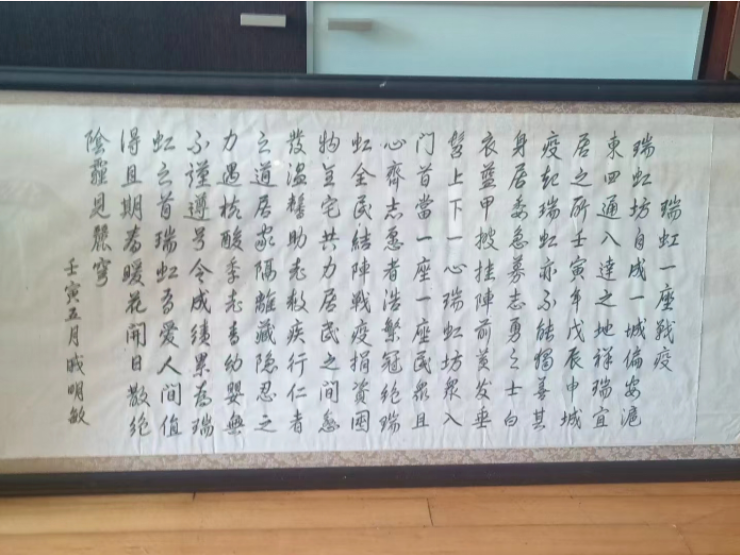 瑞虹一座戰疫
瑞虹坊自成一城偏安滬
東四通八達之地祥瑞宜
居之所壬寅年戊辰申城
疫起瑞虹亦不能獨善其
身居委急募志勇之士白
衣藍甲披挂陣前黄发垂
髫上下一心瑞虹坊眾入
门首當一座一座民眾且
心齊志愿者浩繁冠絕瑞
虹全民結陣戰疫捐資團
物全宅共力居民之间急
發温馨助老救疾行仁者
之道居家隔離藏隐忍之
力遇核酸季老青幼嬰無
不謹遵号令成績累為瑞
虹之首瑞虹有爱人間值
得且期春暖花開日散绝
陰霾見麗穹
壬寅五月 明敏